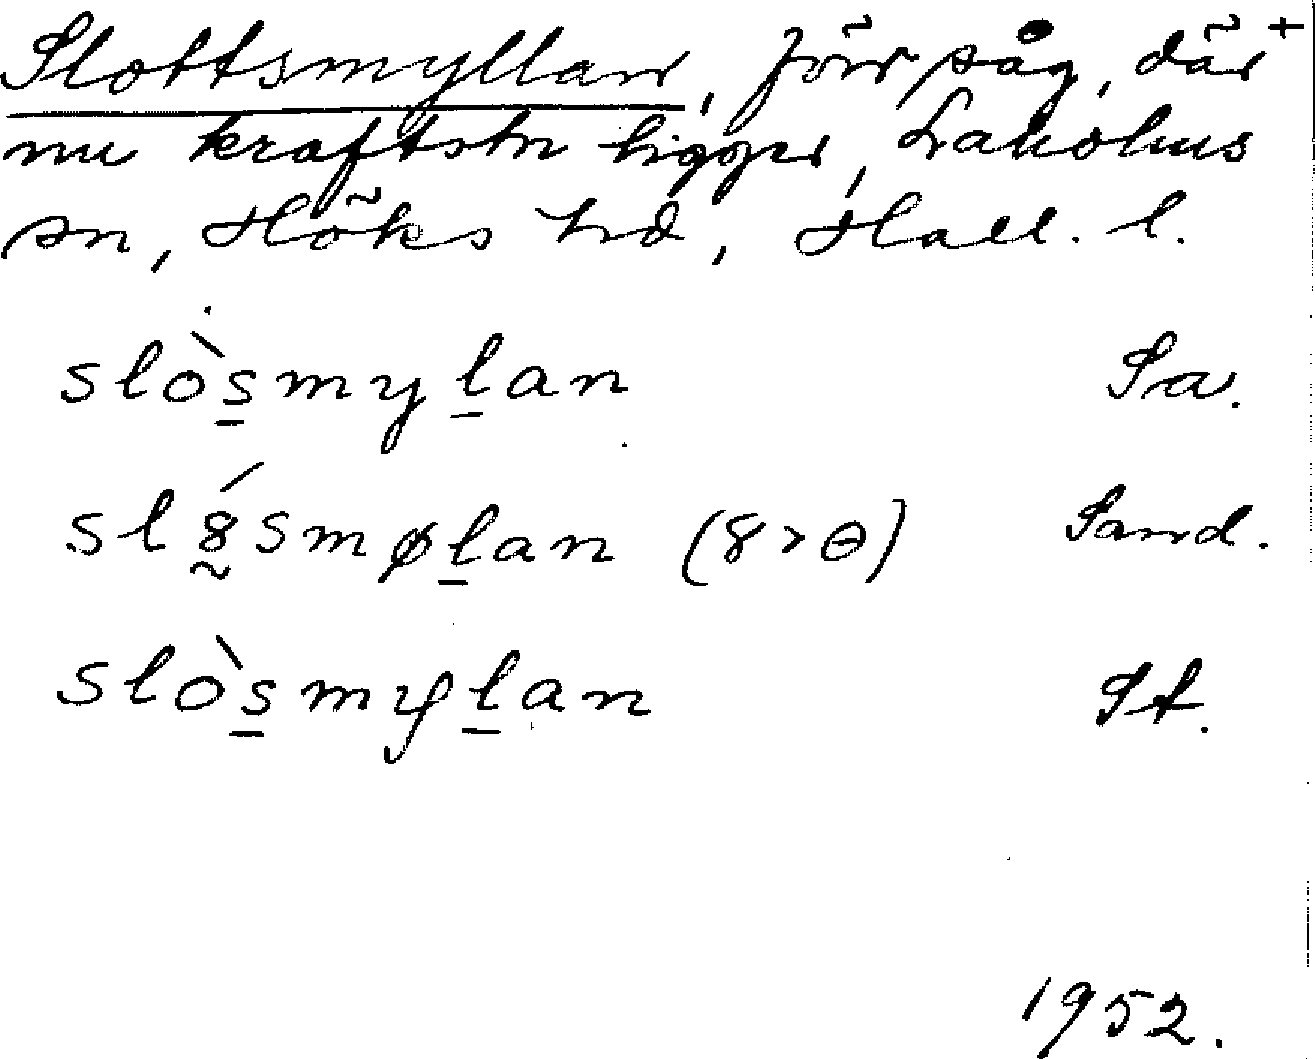 Slottsmyllan, förr såg, där +
nu kraftstn ligger, Laholms
sn, Höks hd, Hall. l.
slò̖s̲myl̲an Sa.
sl8̰́smøl̲an (8>ɵ) Sand.
slòs̲myl̲an St.
1952.